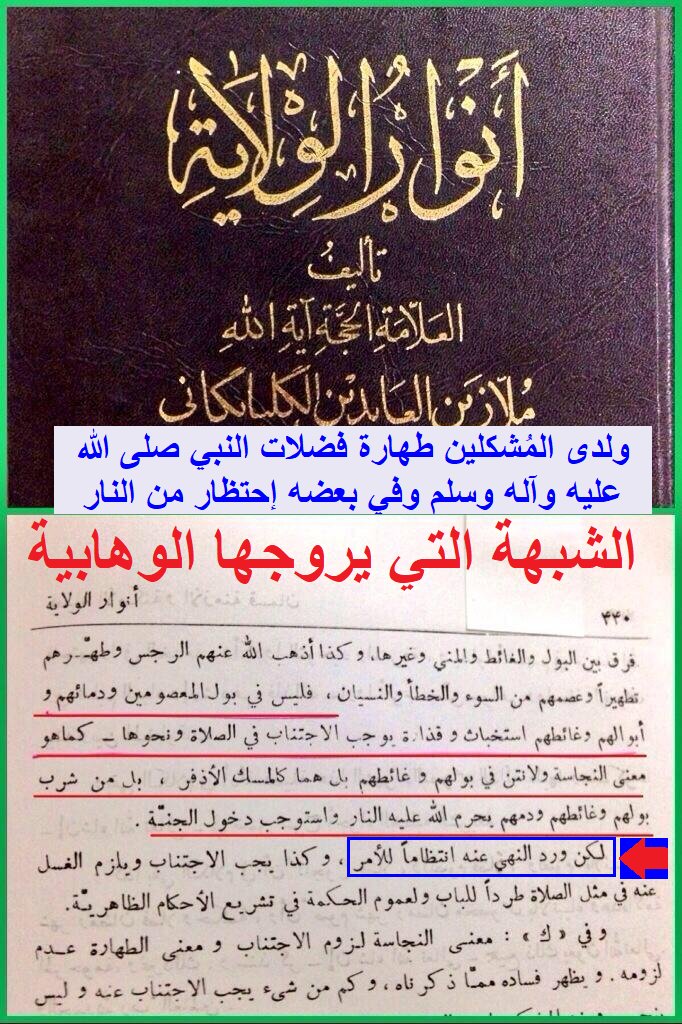 أنوار الولاية
تأليف
العلامة الحجة آية الله
ملا زين العابدين الگلپايگاني
ولدى المُشكلين طهارة فضلات النبي صلى الله
عليه وآله وسلم وفي بعضه إحتظار من النار
الشبهة التي يروجها الوهابية
٤٤٠
أنوار الولاية
فرق بين البول والغائط والمني وغيرها، و كذا أذهب الله عنهم الرجس و طهّرهم
تطهيراً و عصمهم من السوء والخطأ والنسيان، فليس في بول المعصومين ودمائهم و
أبوالهم وغائطهم استخباث و قذارة يوجب الاجتناب في الصلاة ونحوها ــ كما هو
معنى النجاسة ولا نتن في بولهم و غائطهم بل هما كالمسك الأذفر، بل من شرب
بولهم وغائطهم ودمهم يحرم الله عليه النار واستوجب دخول الجنّة.
لكن ورد النهي عنه انتظاماً للأمر، و كذا يجب الاجتناب ويلزم الغسل
عنه في مثل الصلاة طرداً للباب ولعموم الحكمة في تشريع الأحكام الظاهريّة.
و في «ك»: معنى النجاسة لزوم الاجتناب و معنى الطهارة عدم
لزومه. و يظهر فساده ممّا ذكرناه، و كم من شيء يجب الاجتناب عنه و ليس